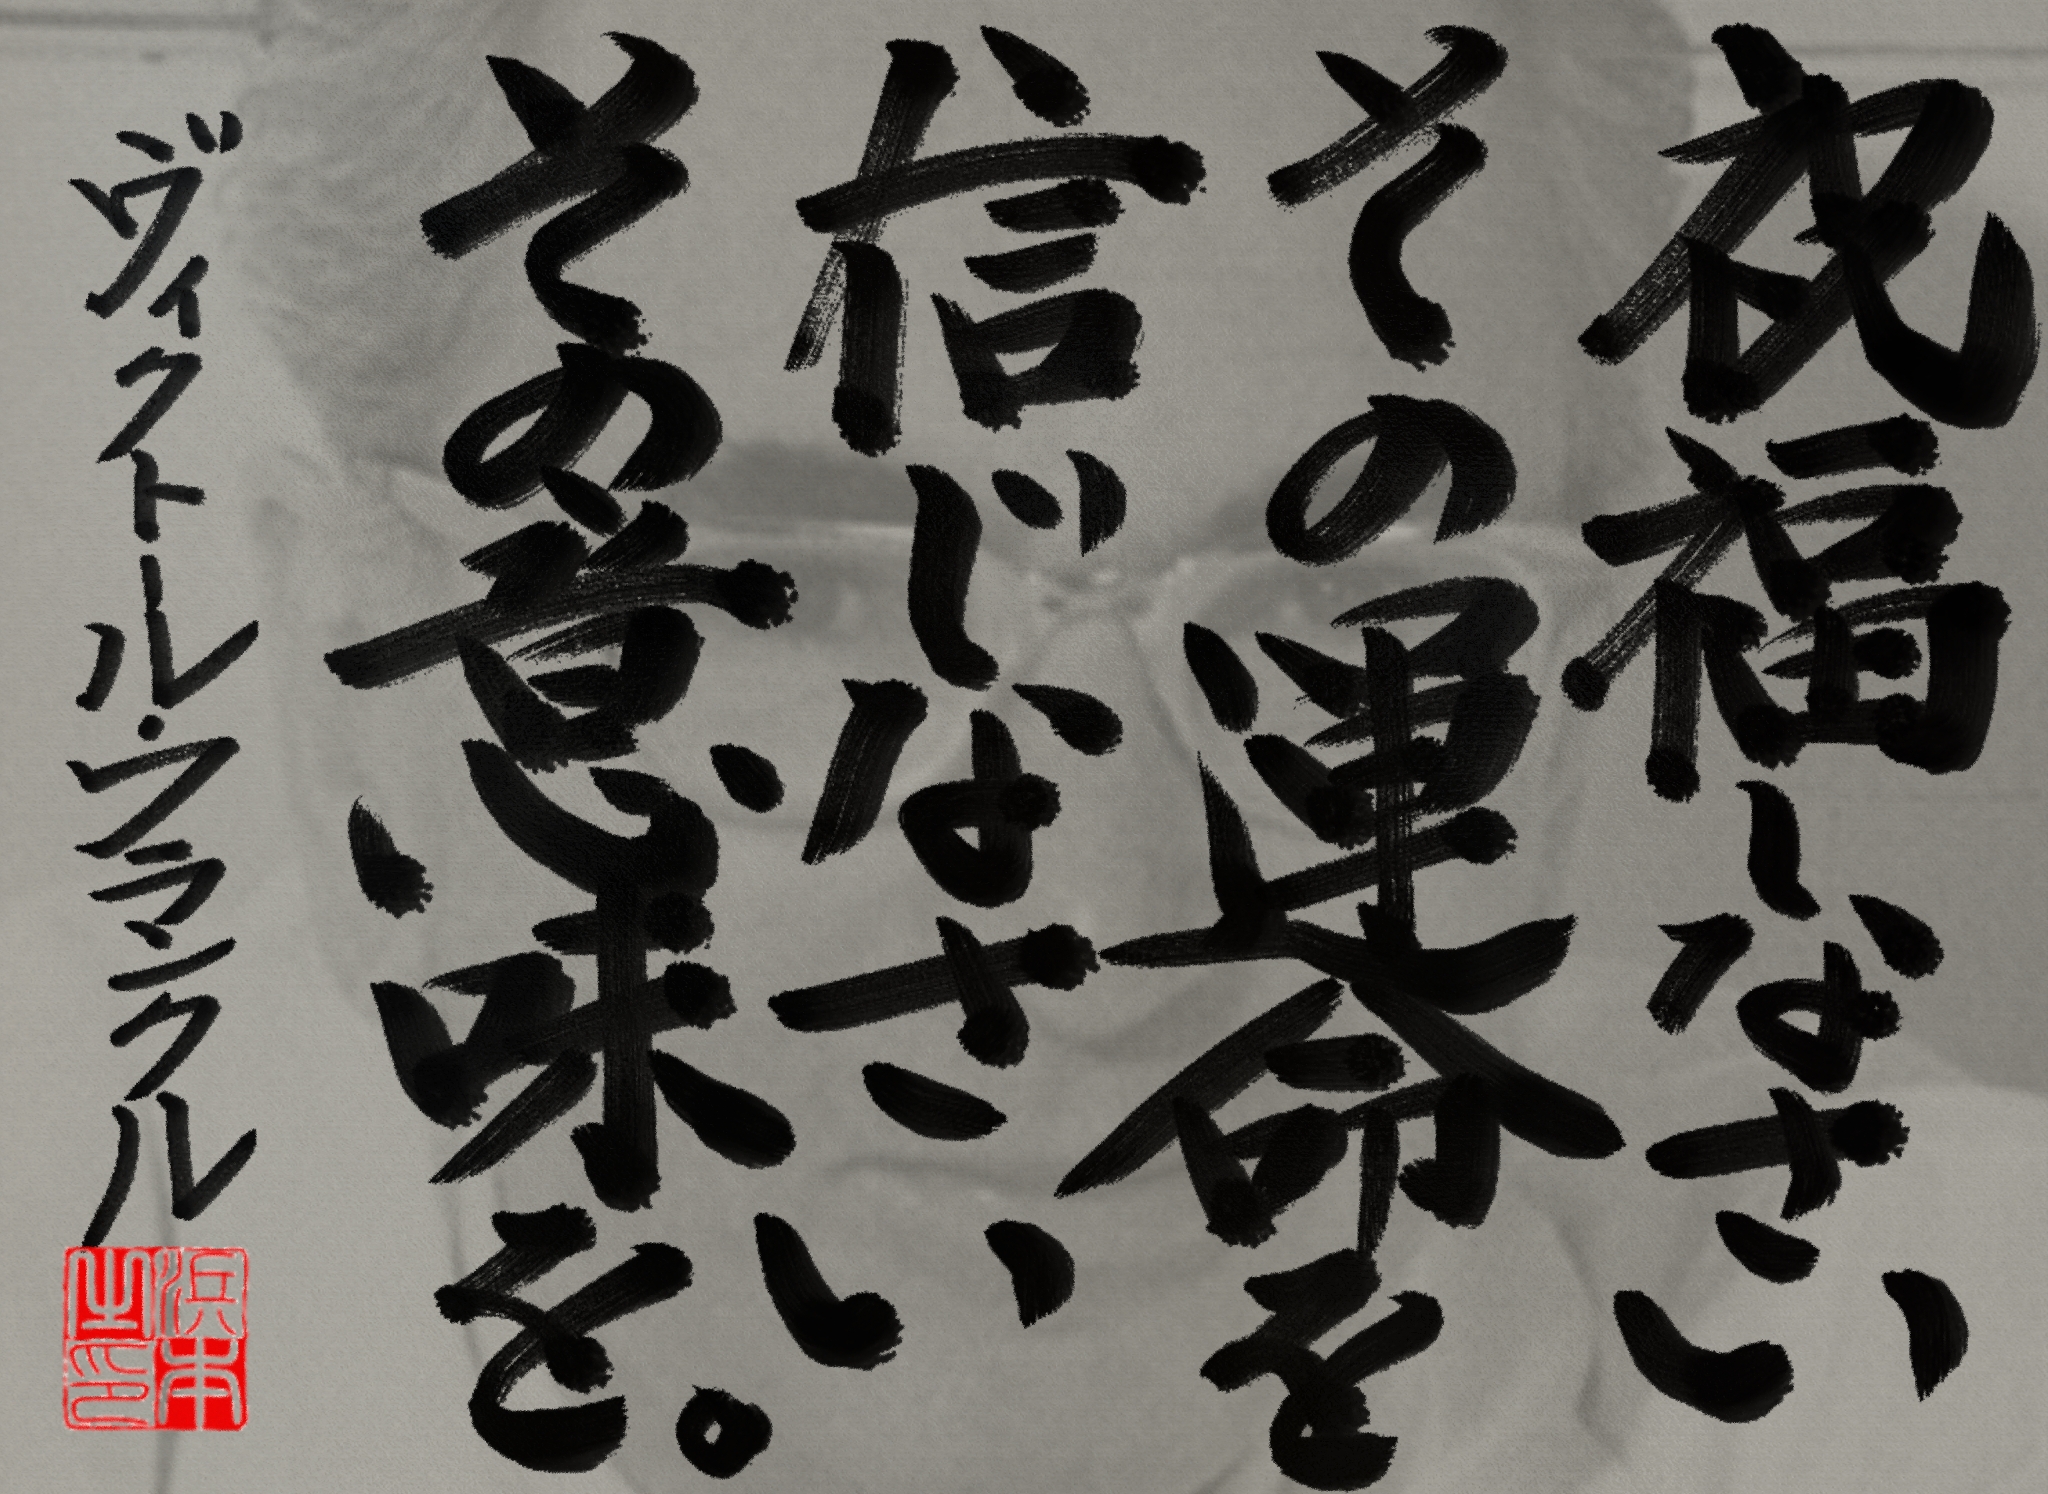 祝福しなさい
その運命を
信じなさい
その意味を。
ヴィクトール・フランクル
浜本
之印